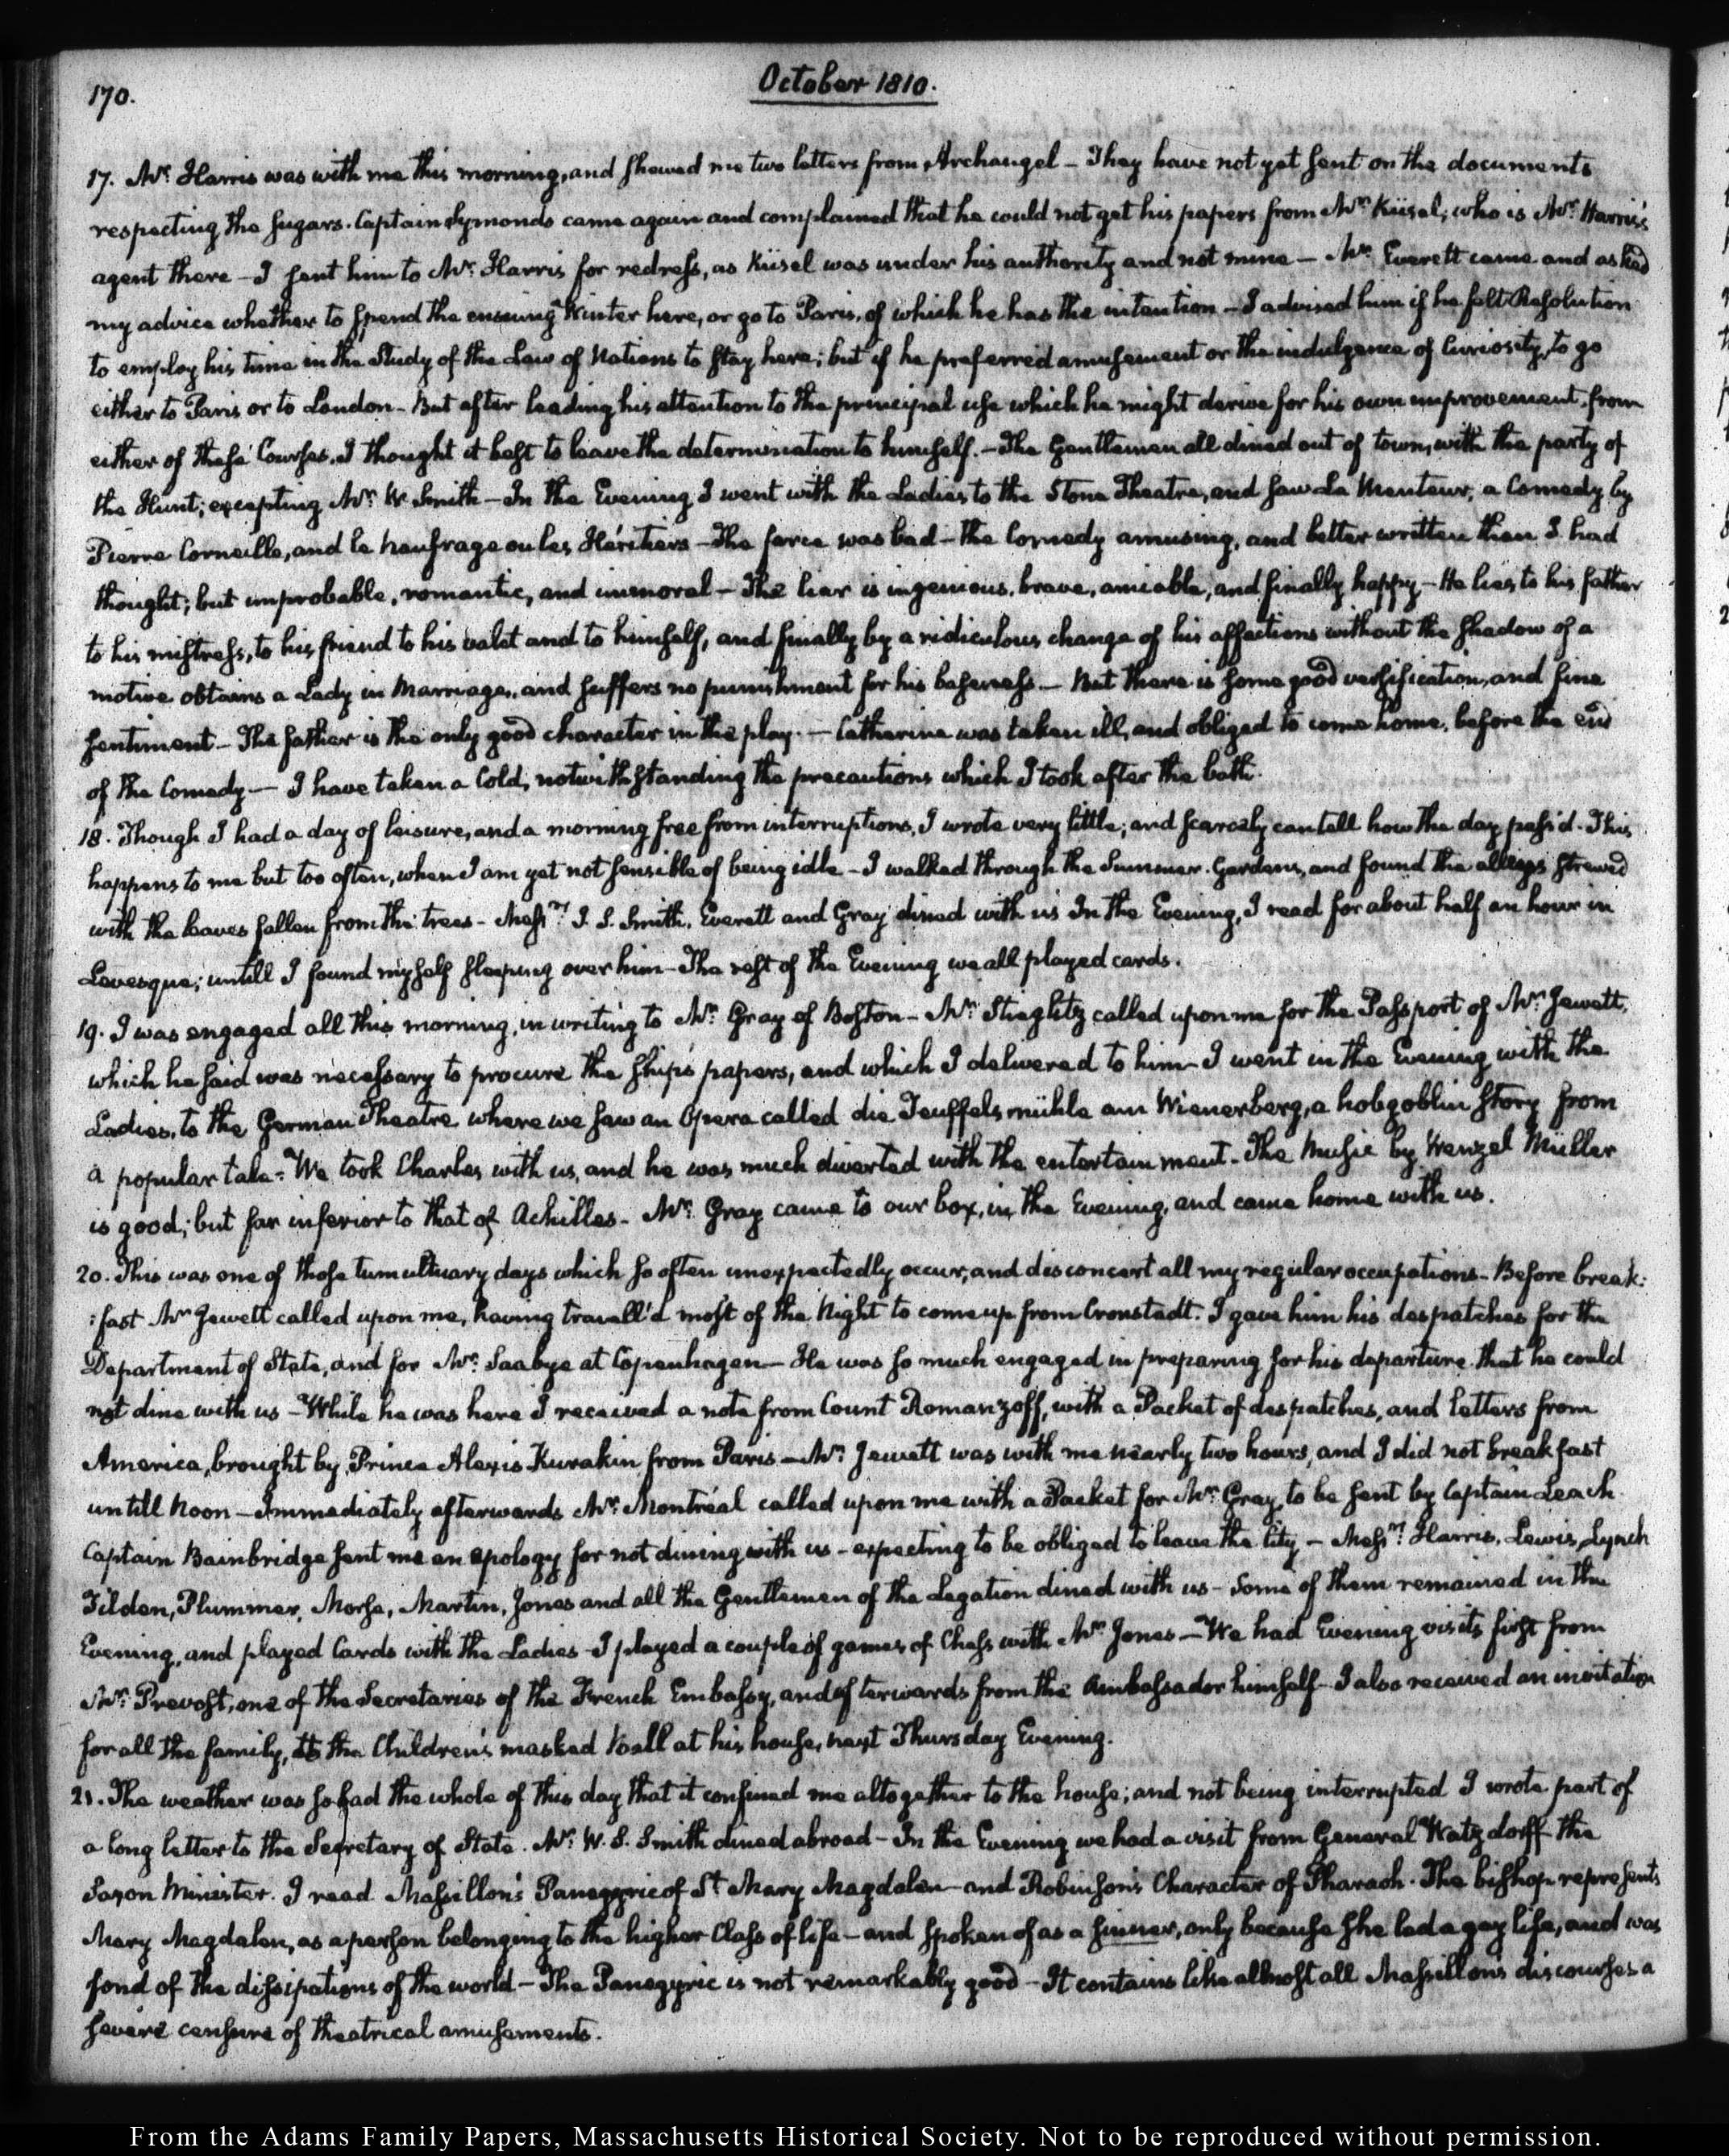 170.
October 1810.
17. Mr. Harris was with me this morning, and shewed me two letters from Archangel - They have not yet sent on the documents
respecting the sugars. Captain Symonds came again and complained that he could not get his papers from Mr. Küsel, who is Mr. Harris's
agent there - I sent him to Mr. Harris for redress, as Küsel was under his authority and not mine - Mr. Everett came and asked
my advice whether to spend the ensuing Winter here, or go to Paris, of which he has the intention - I advised him if he felt Resolution
to employ his time in the Study of the Law of Nations to stay here; but if he preferred amusement or the indulgence of Curiosity, to go
either to Paris or to London - But after leading his attention to the principal use which he might derive for his own improvement, from
either of these Courses, I thought it best to leave the determination to himself. - The Gentlemen all dined out of town, with the party of
the Hunt; excepting Mr. W. Smith - In the Evening I went with the Ladies to the Stone Theatre, and saw Le Menteur, a Comedy by
Pierre Corneille, and le Naufrage ou les Héritiers - The farce was bad - the Comedy amusing, and better written than I had
thought; but improbable, romantic, and immoral - The liar is ingenious, brave, amiable, and finally happy - He lies to his father
to his mistress, to his friend to his valet and to himself, and finally by a ridiculous change of his affections without the shadow of a
motive obtains a Lady in Marriage, and suffers no punishment for his baseness - But there is some good versification, and fine
sentiment - The father is the only good character in the play. - Catherine was taken ill, and obliged to come home, before the end
of the Comedy - I have taken a Cold, notwithstanding the precautions which I took after the bath.
18. Though I had a day of leisure, and a morning free from interruptions, I wrote very little; and scarcely can tell how the day pass'd. This
happens to me but too often, when I am yet not sensible of being idle - I walked through the Summer Gardens, and found the alleys strewed
with the leaves fallen from the trees - Messrs. J. S. Smith, Everett and Gray dined with us In the Evening, I read for about half an hour in
Levesque; untill I found myself sleeping over him - The rest of the Evening we all played cards.
19. I was engaged all this morning, in writing to Mr. Gray of Boston - Mr. Stieglitz called upon me for the Passport of Mr. Jewett,
which he said was necessary to procure the ship's papers, and which I delivered to him - I went in the Evening with the
Ladies, to the German Theatre where we saw an Opera called die Teuffels mühle am Wienerberg, a hobgoblin story from
a popular tale - We took Charles with us, and he was much diverted with the entertainment - The Music by Wenzel Müller
is good; but far inferior to that of Achilles - Mr. Gray came to our box, in the Evening, and came home with us.
20. This was one of those tumultuary days which so often unexpectedly occur, and disconcert all my regular occupations - Before break:
:fast Mr. Jewett called upon me, having travell'd most of the Night to come up from Cronstadt. I gave him his despatches for the
Department of State, and for Mr. Saabye at Copenhagen - He was so much engaged in preparing for his departure that he could
not dine with us - While he was here I received a note from Count Romanzoff, with a Packet of despatches, and letters from
America, brought by Prince Alexis Kurakin from Paris - Mr. Jewett was with me nearly two hours, and I did not breakfast
untill Noon - Immediately afterwards Mr. Montréal called upon me with a Packet for Mr. Gray, to be sent by Captain Leach.
Captain Bainbridge sent me an apology for not dining with us - expecting to be obliged to leave the City - Messrs. Harris, Lewis, Lynch
Tilden, Plummer, Morse, Martin, Jones and all the Gentlemen of the Legation dined with us - Some of them remained in the
Evening, and played Cards with the Ladies - I played a couple of games of Chess with Mr. Jones - We had Evening visits first from
Mr. Prevost, one of the Secretaries of the French Embassy, and afterwards from the Ambassador himself - I also received an invitation
for all the family, to the Children's masked Ball at his house, next Thursday Evening.
21. The weather was so bad the whole of this day that it confined me altogether to the house; and not being interrupted I wrote part of
a long letter to the Secretary of State. Mr. W. S. Smith dined abroad - In the Evening we had a visit from General Watzdorff the
Saxon Minister. I read Massillon's Panegyric of St. Mary Magdalen - and Robinson's Character of Pharaoh. The bishop represents
Mary Magdalen, as a person belonging to the higher Class of life - and spoken of as a sinner, only because she led a gay life, and was
fond of the dissipations of the world - The Panegyric is not remarkably good - It contains like almost all Massillon's discourses a
severe censure of theatrical amusements.
From the Adams Family Papers, Massachusetts Historical Society. Not to be reproduced without permission.